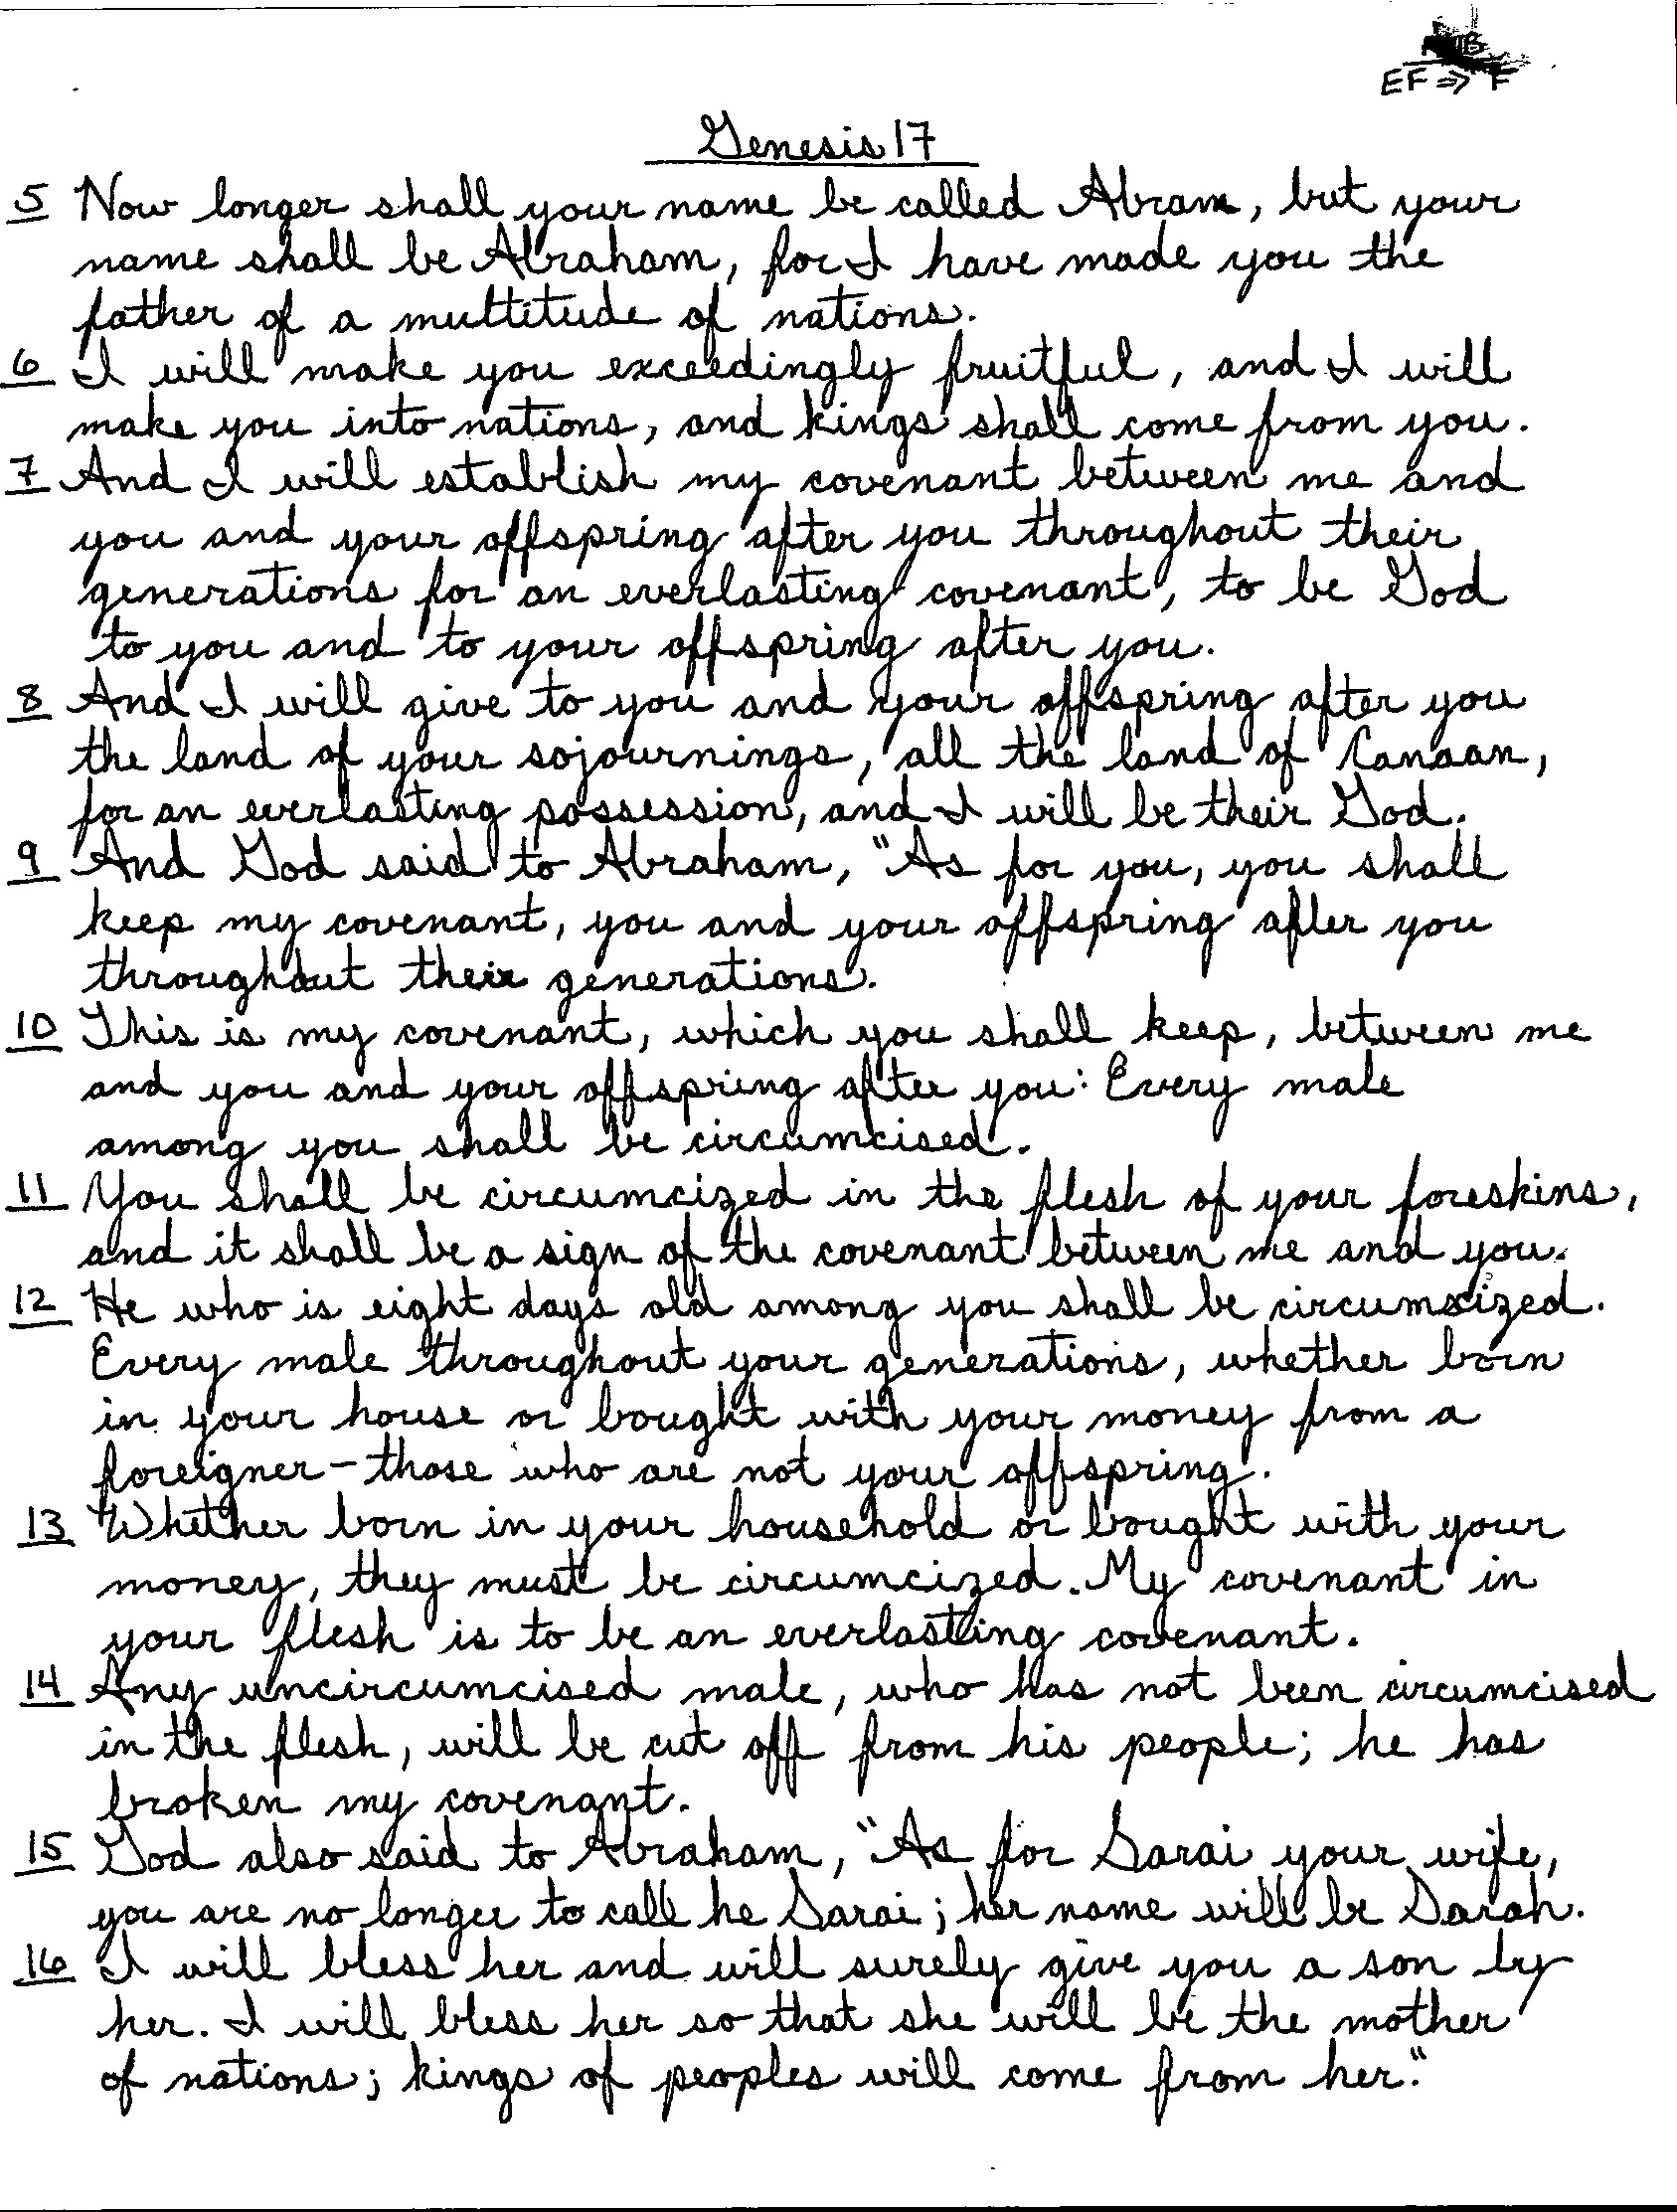 EF ⇒ F
Genesis 17
5 Now longer shall your name be called Abram, but your
name shall be Abraham, for I have made you the
father of a multitude of nations.
6 I will make you exceedingly fruitful, and I will
make you into nations, and kings shall come from you.
7 And I will establish my covenant between me and
you and your offspring after you throughout their
generations for an everlasting covenant, to be God
to you and to your offspring after you.
8 And I will give to you and your offspring after you
the land of your sojournings, all the land of Canaan,
for an everlasting possession, and I will be their God.
9 And God said to Abraham, "As for you, you shall
keep my covenant, you and your offspring after you
throughout their generations.
10 This is my covenant, which you shall keep, between me
and you and your offspring after you: Every male
among you shall be circumcised.
11 You shall be circumcized in the flesh of your foreskins,
and it shall be a sign of the covenant between me and you.
12 He who is eight days old among you shall be circumcized.
Every male throughout your generations, whether born
in your house or bought with your money from a
foreigner - those who are not your offspring.
13 Whether born in your household or bought with your
money, they must be circumcized. My covenant in
your flesh is to be an everlasting covenant.
14 Any uncircumcised male, who has not been circumcised
in the flesh, will be cut off from his people; he has
broken my covenant.
15 God also said to Abraham, "As for Sarai your wife,
you are no longer to call he Sarai; her name will be Sarah.
16 I will bless her and will surely give you a son by
her. I will bless her so that she will be the mother
of nations; kings of peoples will come from her."